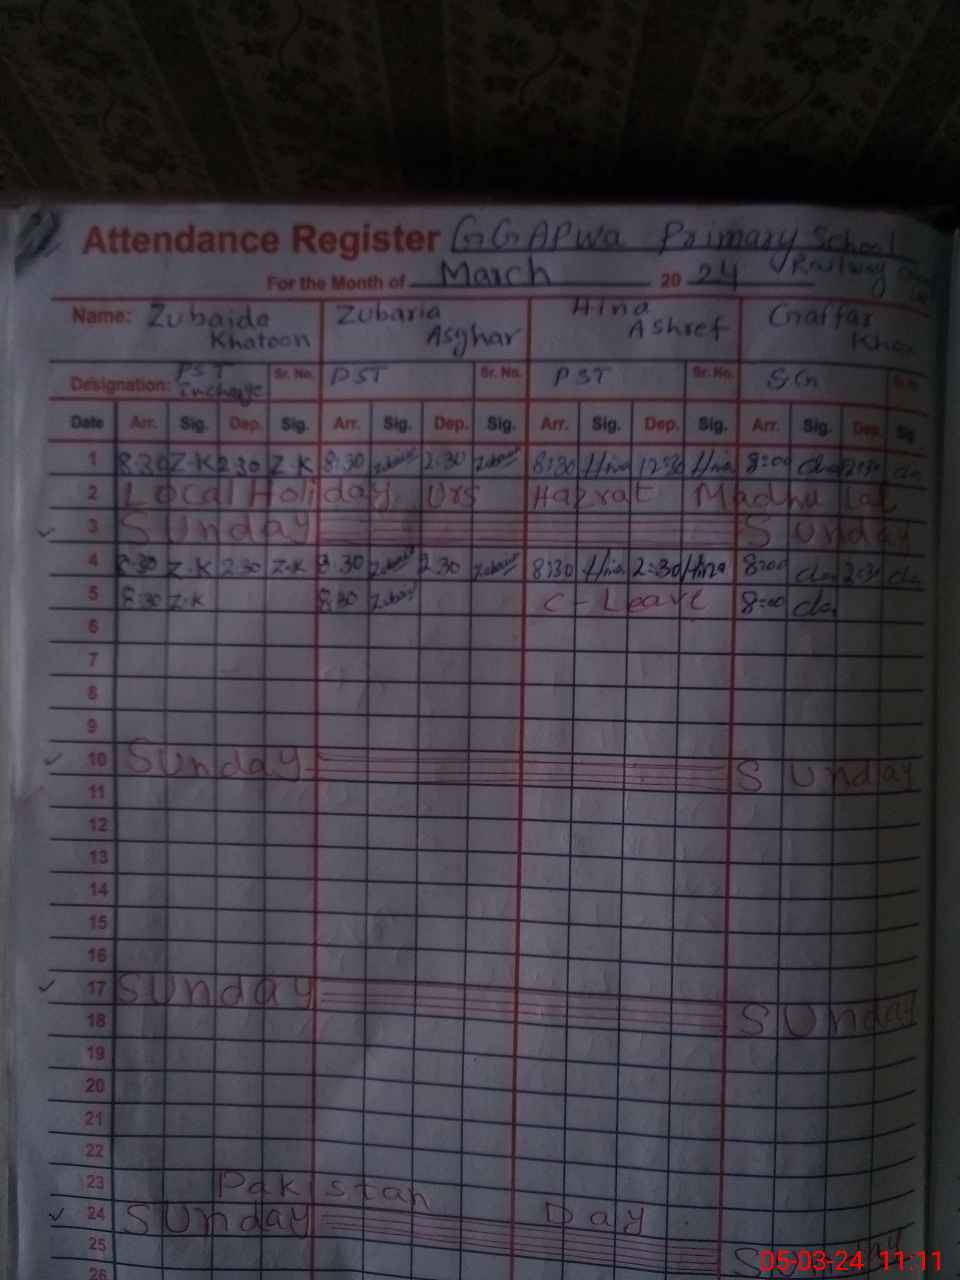 Attendance Register GGAPwa Primary School
For the Month of March 20 24 Railway
Name: Zubaida Khatoon Zubaria Asghar Hina Ashref Gaffar Khan
Designation: PST Incharge Sr. No. PST Sr. No. PST Sr. No.
Date Arr. Sig. Dep. Sig. Arr. Sig. Dep. Sig. Arr. Sig. Dep. Sig. Arr. Sig. Dep. Sig
1 8:30 Z.K 2:30 Z.K 8:30 2:30 8:30 Hina 12:30 Hina 8:00
2 Local Holiday Urs Hazrat Madhu Lal
3 Sunday Sunday
4 8:30 Z.K 2:30 Z.K 8:30 2:30 8:30 Hina 2:30 Hina 8:00 2:30
5 8:30 Z.K 8:30 C-Leave 8:00
6
7
8
9
10 Sunday Sunday
11
12
13
14
15
16
17 Sunday Sunday
18
19
20
21
22
23 Pakistan Day
24 Sunday Sunday
25
26
05-03-24 11:11